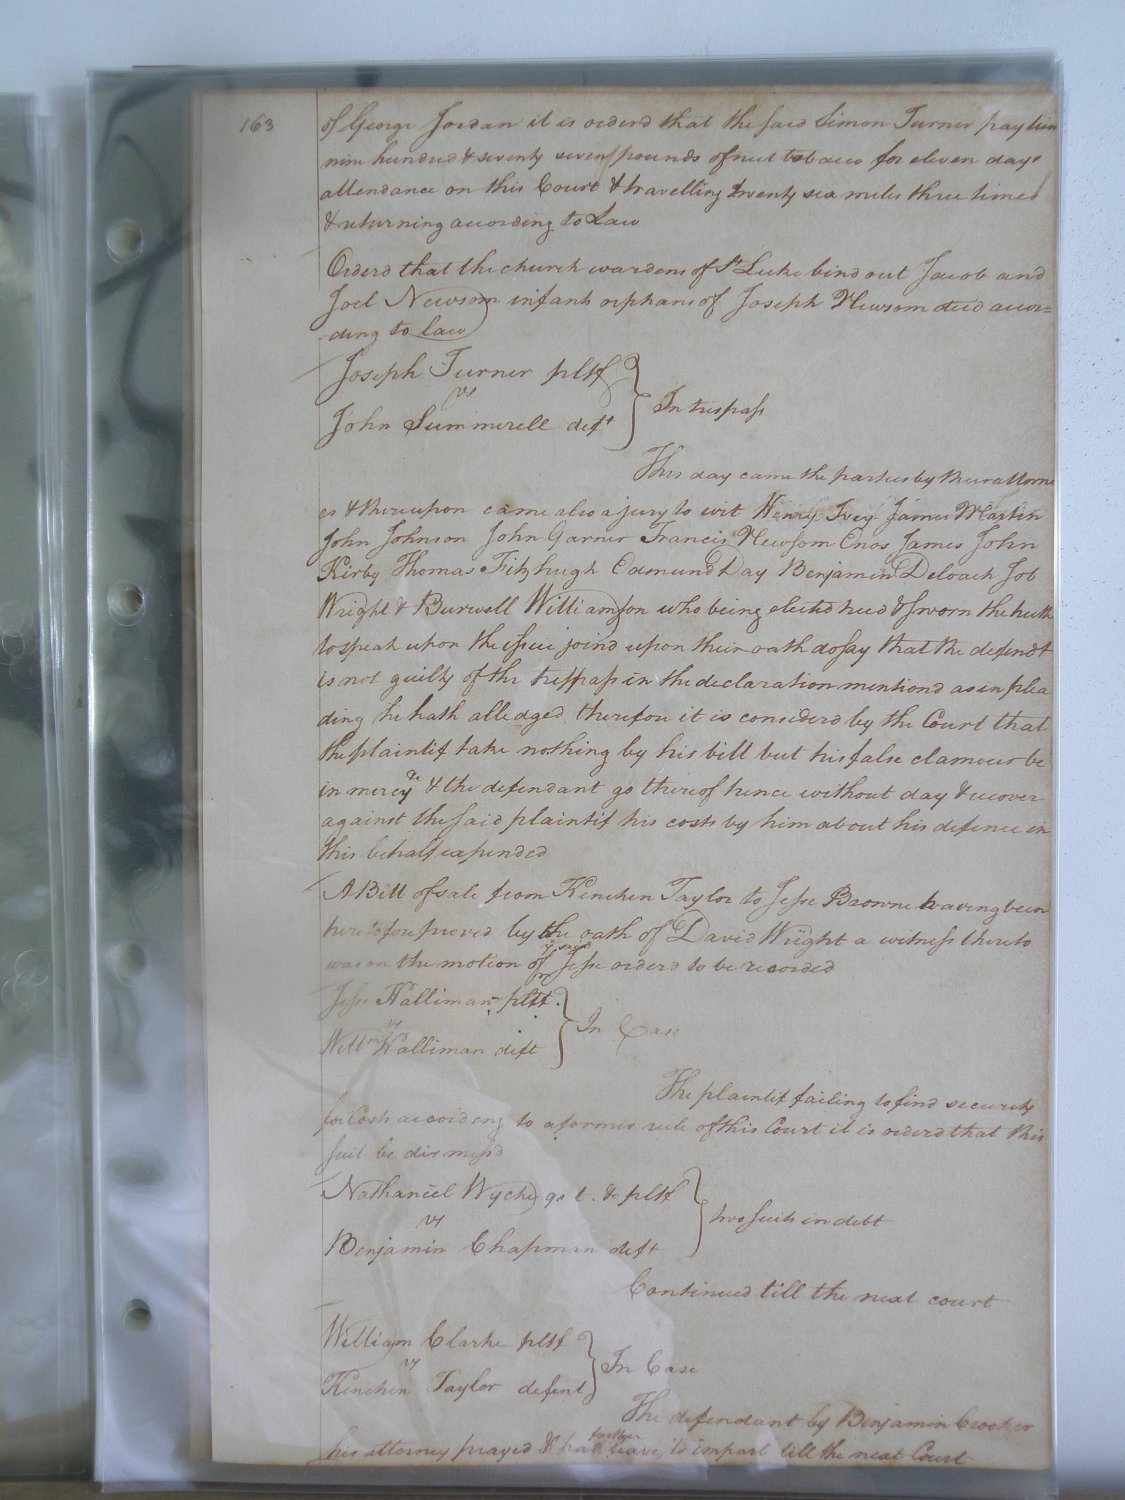 163
of George Jordan it is orderd that the said Simon Turner pay him
nine hundred & seventy seven pounds of nett tobacco for eleven days
attendance on this Court & travelling twenty six miles three times
& returning according to Law
Orderd that the church wardens of St Luke bind out Jacob and
Joel Newsom infant orphans of Joseph Newsom decd accor=
ding to law
Joseph Turner pltf
vs
John Summerell deft
In trespass
This day came the parties by their attorne
es & thereupon came also a jury to wit Henry Ivey James Martin
John Johnson John Garner Francis Newsom Enos James John
Kirby Thomas Fitzhugh Edmund Day Benjamin Deloach Job
Wright & Burwell Williamson who being elected tried & sworn the truth
to speak upon the issue joind upon their oath do say that the defendt
is not guilty of the trespass in the declaration mentiond as in plea
ding he hath alledged therefore it is considerd by the Court that
the plaintif take nothing by his bill but his false clamour be
in mercy &c & the defendant go thereof hence without day & recover
against the said plaintif his costs by him about his defence in
this behalf expended
A Bill of sale from Kinchen Taylor to Jesse Browne having been
heretofore proved by the oath of David Wright a witness thereto
was on the motion of ye said Jesse orderd to be recorded
Jesse Halliman pltf.
vs
Willm Halliman deft
In Case
The plaintif failing to find security
for Costs according to a former rule of this Court it is orderd that this
suit be dismissd
Nathaniel Wyche &c pltf
vs
Benjamin Chapman deft
two suits in debt
Continued till the next court
William Clarke pltf
vs
Kinchen Taylor defent
In Case
The defendant by Benjamin Crocker
his attorney prayed & had further leave to imparl till the next Court